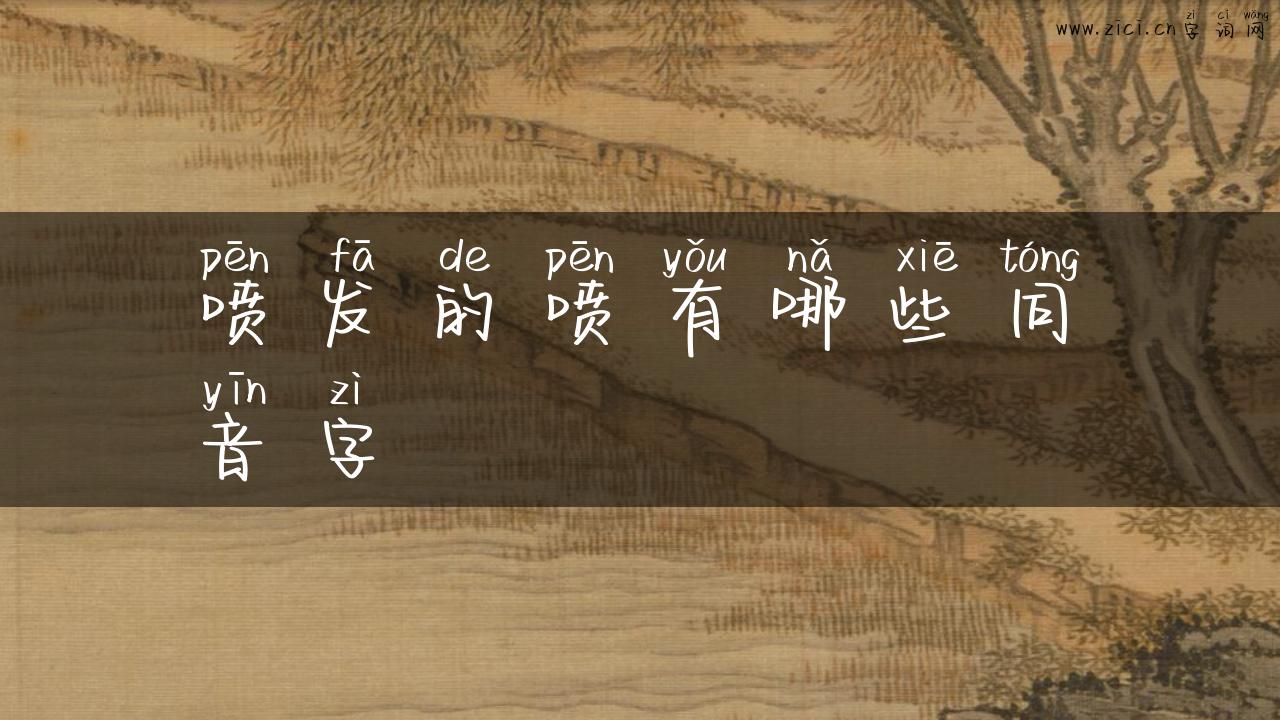 zì cí wǎng
www.zici.cn字词网
pēn fā de pēn yǒu nǎ xiē tóng
喷发的喷有哪些同
yīn zì
音字